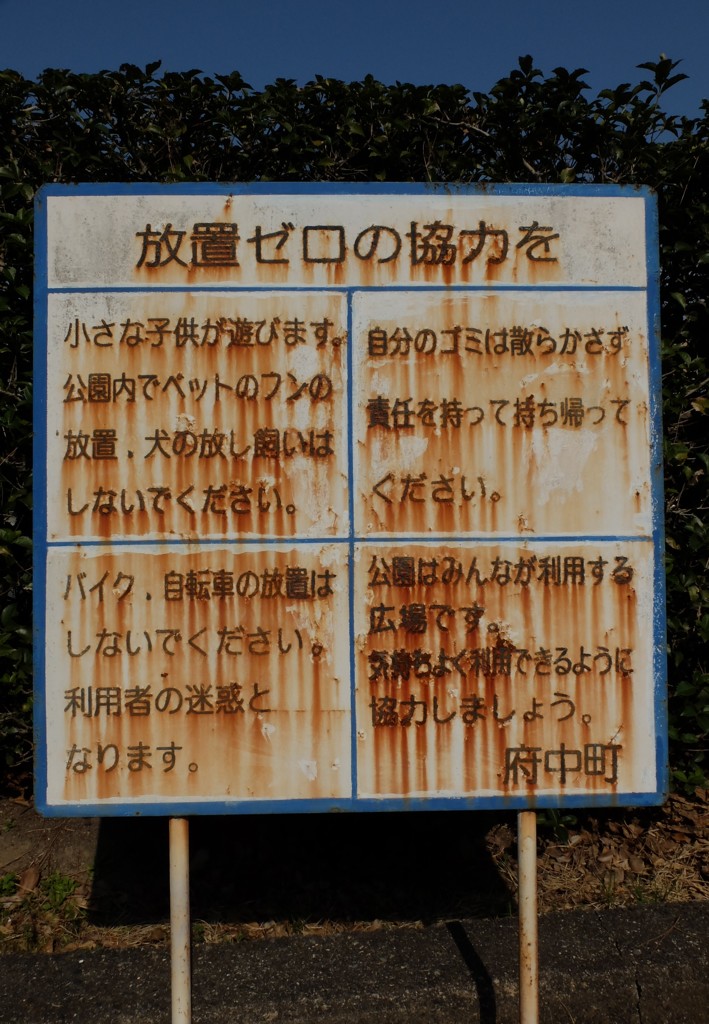 放置ゼロの協力を
小さな子供が遊びます。
公園内でペットのフンの
放置．犬の放し飼いは
しないでください。
自分のゴミは散らかさず
責任を持って持ち帰って
ください。
バイク．自転車の放置は
しないでください。
利用者の迷惑と
なります。
公園はみんなが利用する
広場です。
気持ちよく利用できるように
協力しましょう。
府中町